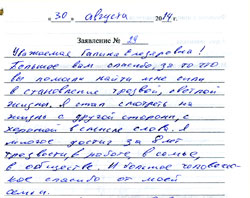 « 30 » августа 2014 г.
Заявление № 29
Уважаемая Галина Елизаровна!
Большое вам спасибо, за то что
вы помогли найти мне силы
в становление трезвой, светлой
жизни. Я стал смотреть на
жизнь с другой стороны, с
хорошей в смысле слова. Я
многое достиг за 8 лет
трезвости в работе, в семье,
в обществе. И большое человечес-
кое спасибо от моей
семьи.